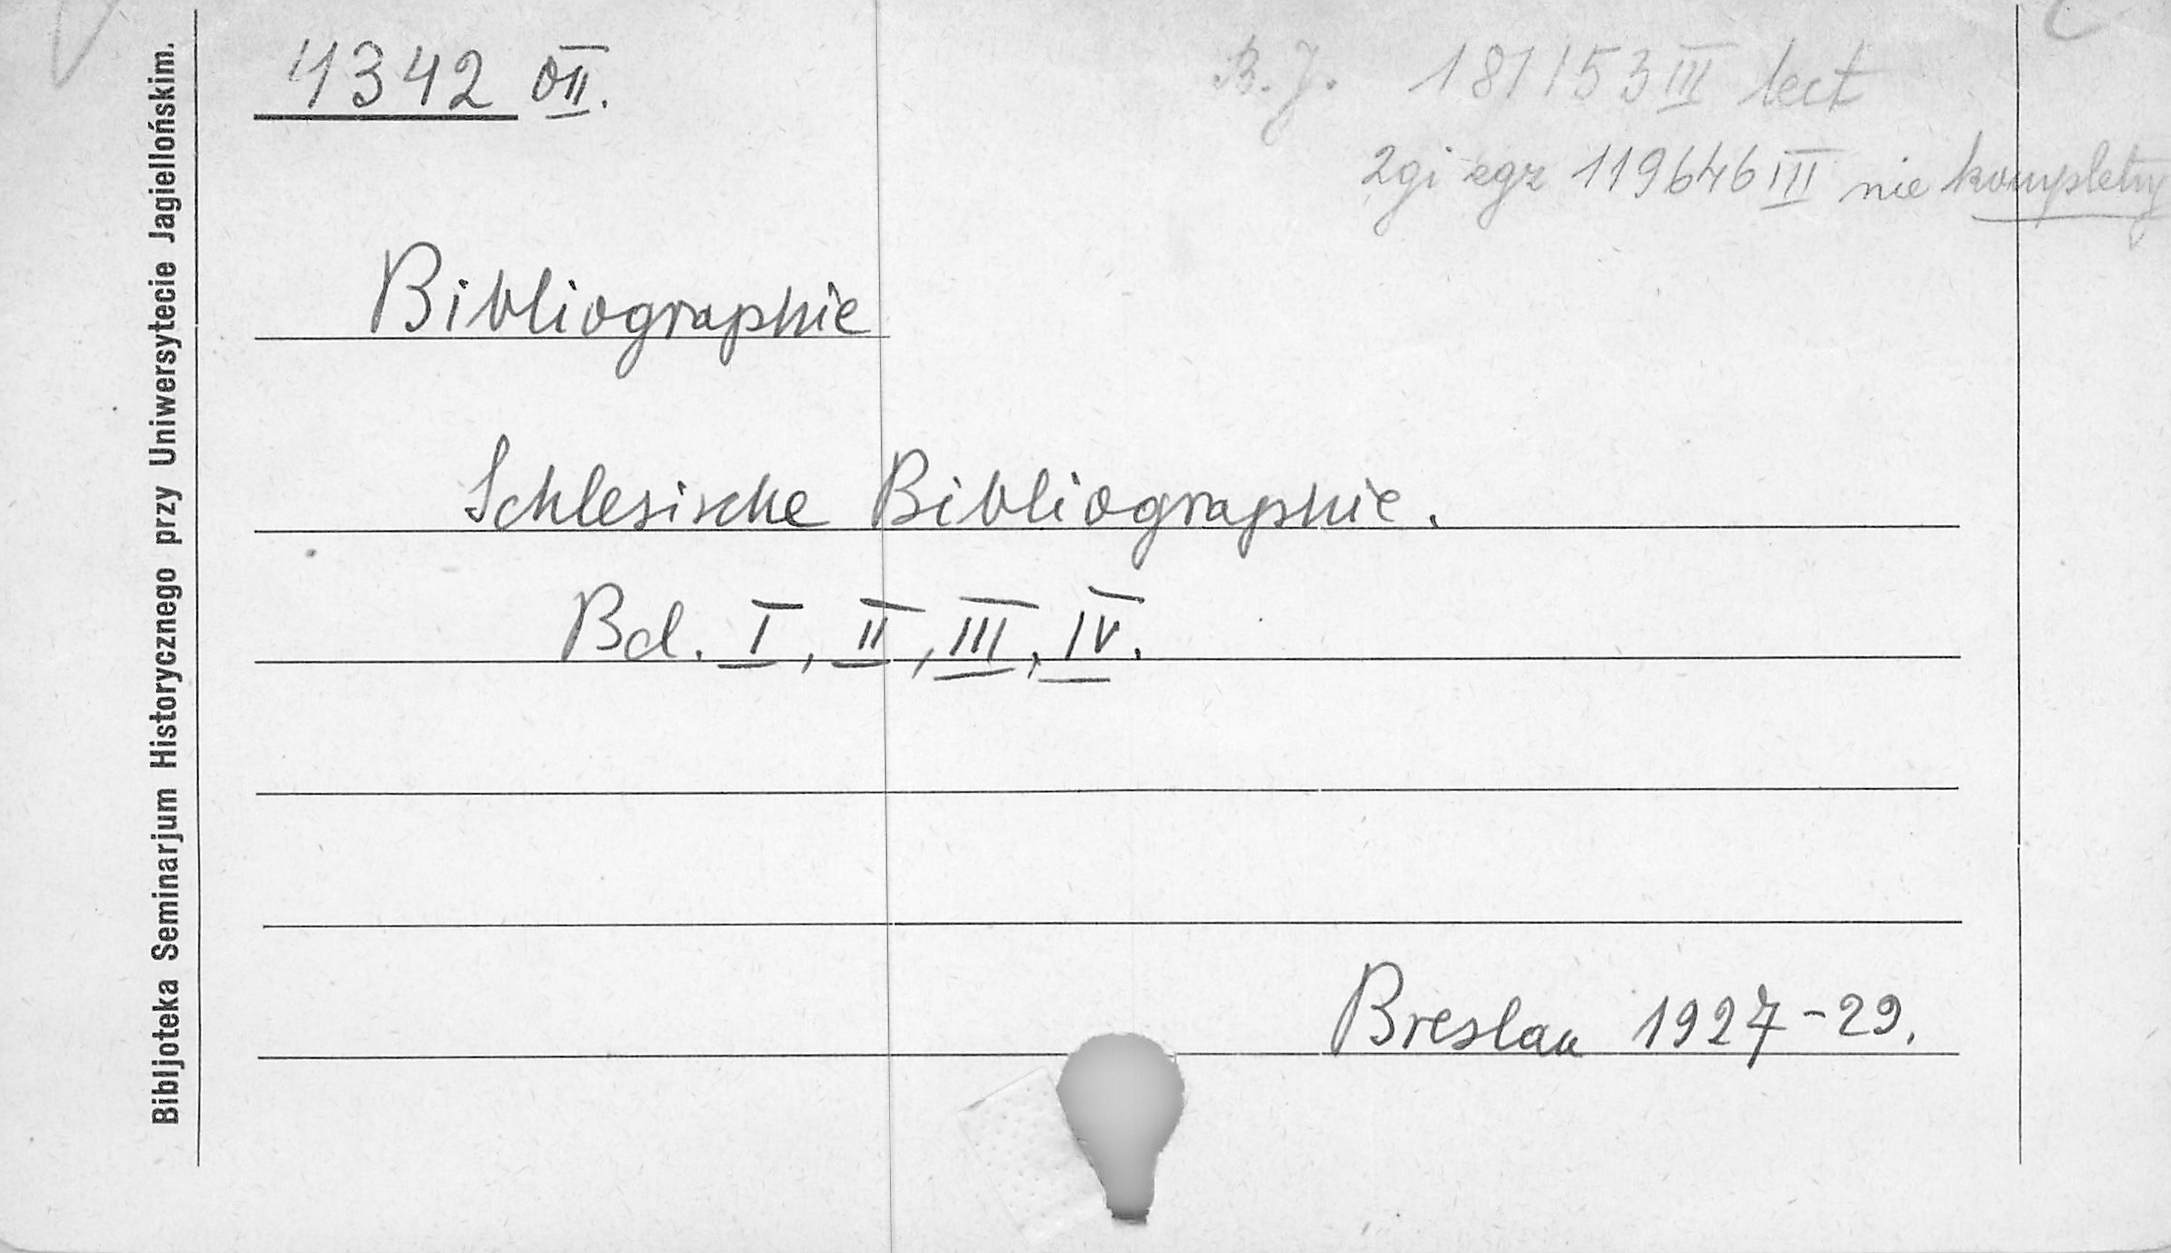 4342 OII.
B. J. 181153 III lect
2gi egz 119646 III nie kompletny
Bibliographie
Schlesische Bibliographie.
Bd. I, II, III, IV.
Breslau 1927-29.
Bibljoteka Seminarjum Historycznego przy Uniwersytecie Jagiellońskim.